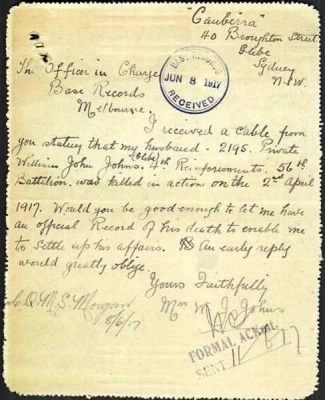 "Canberra"
40 Broughton Street
Glebe
Sydney
N.S.W.
The Officer in Charge
Base Records
Melbourne.
JUN 8 1917
RECEIVED
I received a cable from
you stating that my husband - 2195. Private
William John Johns, 4th Reinforcements. 56th
Battalion, was killed in action on the 2nd April
1917. Would you be good enough to let me have
an official Record of his death to enable me
to settle up his affairs. An early reply
would greatly oblige.
Yours Faithfully
Mrs W Johns
Q.M.S. Morgan
8/6/17
FORMAL ACK
SENT 11 17